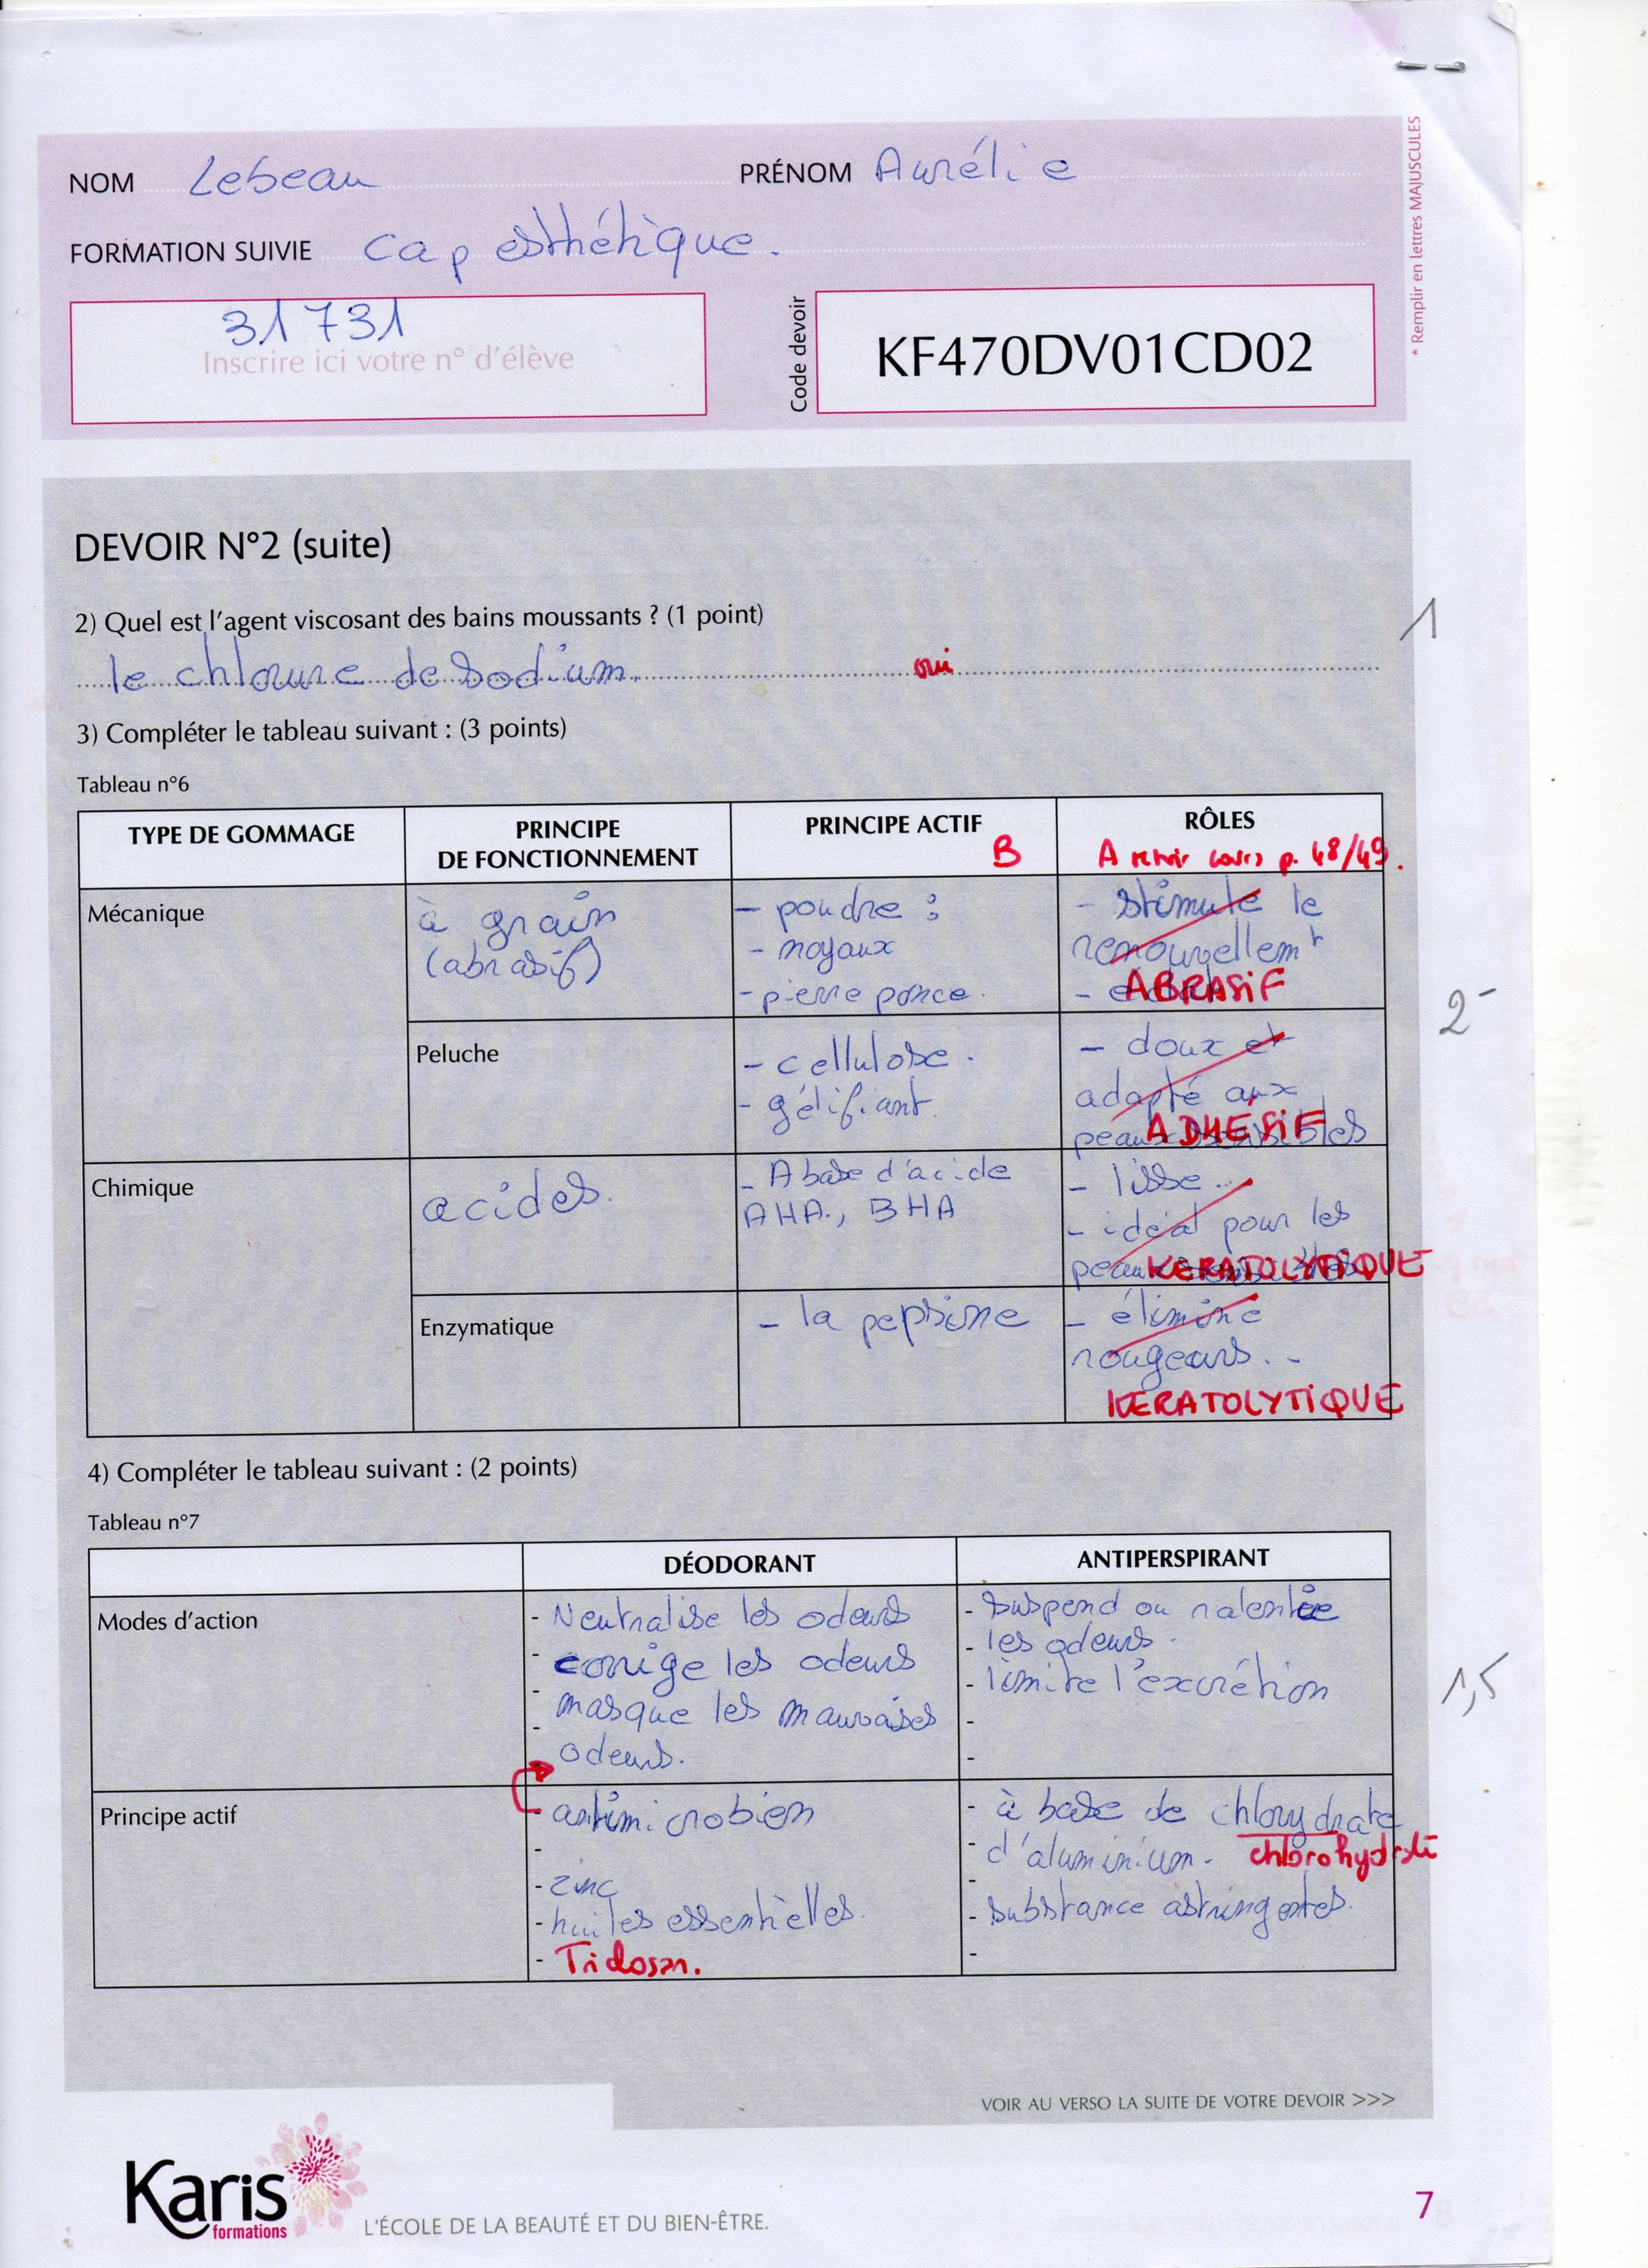 * Remplir en lettres MAJUSCULES
NOM Lebeau PRÉNOM Aurélie
FORMATION SUIVIE Cap esthétique.
31731
Inscrire ici votre n° d'élève
Code devoir
KF470DV01CD02
DEVOIR N°2 (suite)
2) Quel est l'agent viscosant des bains moussants ? (1 point)
1
le chlorure de sodium. oui
3) Compléter le tableau suivant : (3 points)
Tableau n°6
TYPE DE GOMMAGE
PRINCIPE
DE FONCTIONNEMENT
PRINCIPE ACTIF
B
RÔLES
A revoir cours p. 48/49.
Mécanique
à grain
(abrasif)
- poudre :
- noyaux
- pierre ponce.
- stimule le
renouvellemt
ABRASIF
2-
Peluche
- cellulose.
- gélifiant.
- doux et
adapté aux
peaux sensibles
ADHÉSIF
Chimique
acides.
- A base d'acide
AHA., BHA
- lisse.
- idéal pour les
KERATOLYTIQUE
Enzymatique
- la pepsine
- élimine
rougeurs..
KERATOLYTIQUE
4) Compléter le tableau suivant : (2 points)
Tableau n°7
DÉODORANT
ANTIPERSPIRANT
Modes d'action
- Neutralise les odeurs
- corrige les odeurs
- masque les mauvaises
- odeurs.
- suspend ou ralentie
- les odeurs.
- limite l'excrétion
-
-
1,5
Principe actif
- antimicrobien
-
- zinc
- huiles essentielles.
- Triclosan.
- à base de chlorydrate
- d'aluminium. chlorohydrate
-
- substance astringentes.
-
VOIR AU VERSO LA SUITE DE VOTRE DEVOIR >>>
Karis
formations
L'ÉCOLE DE LA BEAUTÉ ET DU BIEN-ÊTRE.
7